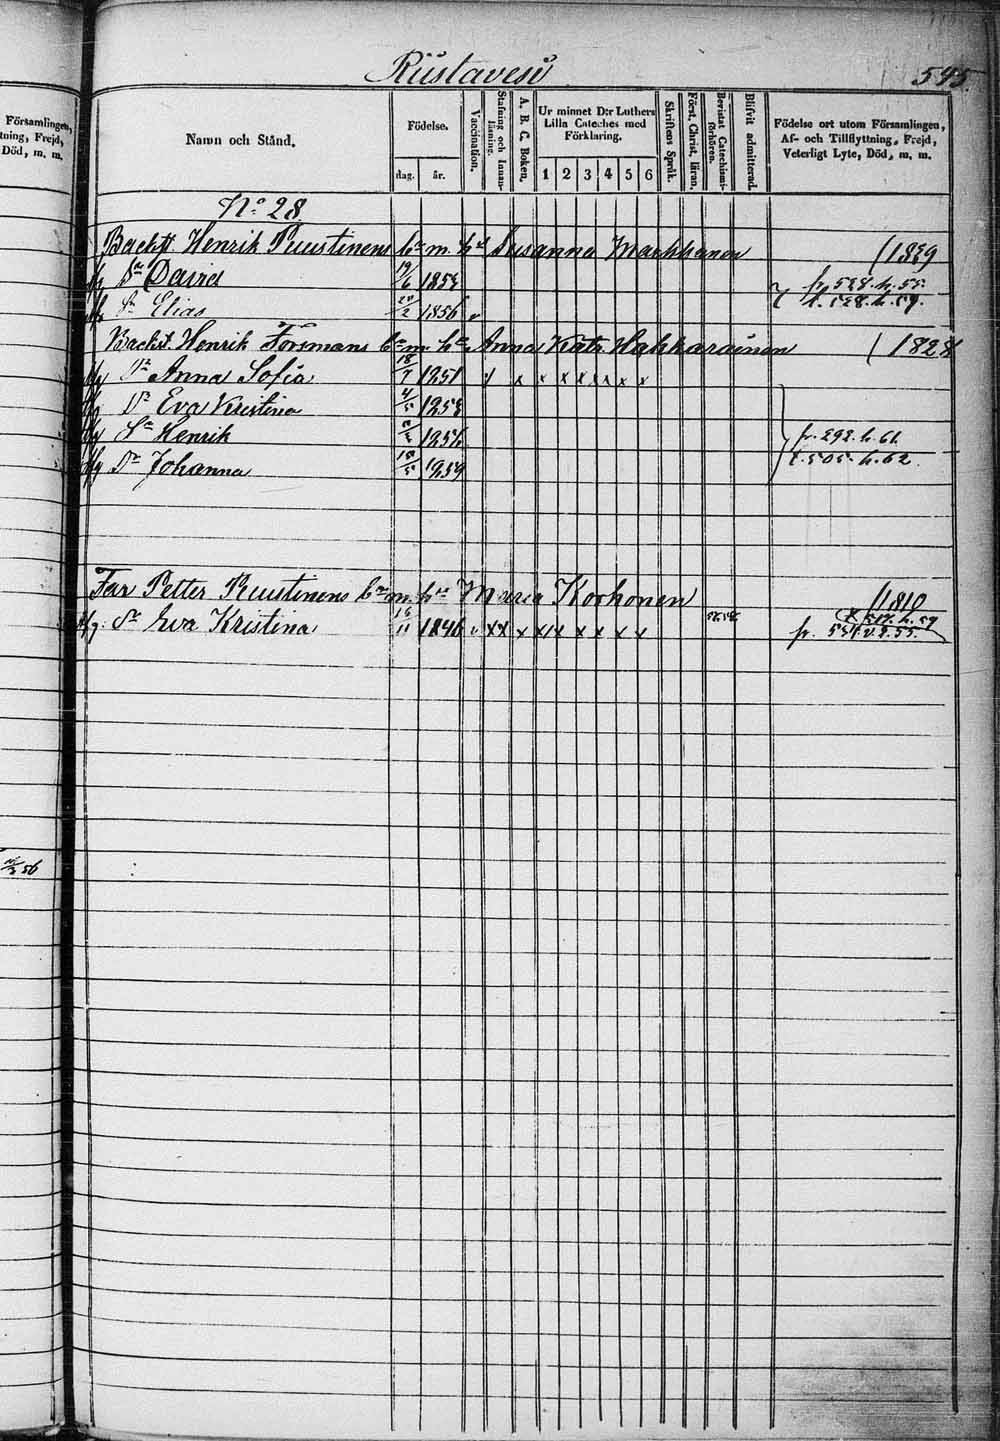 Rustavesi
595.
Församlingen,
Frejd,
Död, m. m.
Namn och Stånd.
Födelse.
dag.
år.
Vaccination.
Stafning och Innanläsning.
A. B. C. Boken.
Ur minnet D:r Luthers
Lilla Cateches med
Förklaring.
1 2 3 4 5 6
Skriftens Språk.
Först. Christ. läran.
Bevistat Catechismiförhören.
Blifvit admitterad.
Födelse ort utom Församlingen,
Af- och Tillflyttning, Frejd,
Veterligt Lyte, Död, m. m.
No 28.
Henrik Puustinens m. Susanna Markkanen
David 19/6 1853 fr. 528. h. 55.
Elias 1856 v t. 528. h. 59.
Backst. Henrik Forsmans m. Anna Katr. Hakkarainen 1828
Dr Anna Sofia 18/7 1851 x x x x x x x x
Dr Eva Kristina 4/5 1853
Sn Henrik 1856 fr. 292. h. 61.
Dr Johanna 1859 t. 505. h. 62.
Far Petter Puustinens m. Maria Korhonen 1810
Dr Eva Kristina 16/11 1846 v x x x x x x x x x fr. 531. v. s. 55.
56